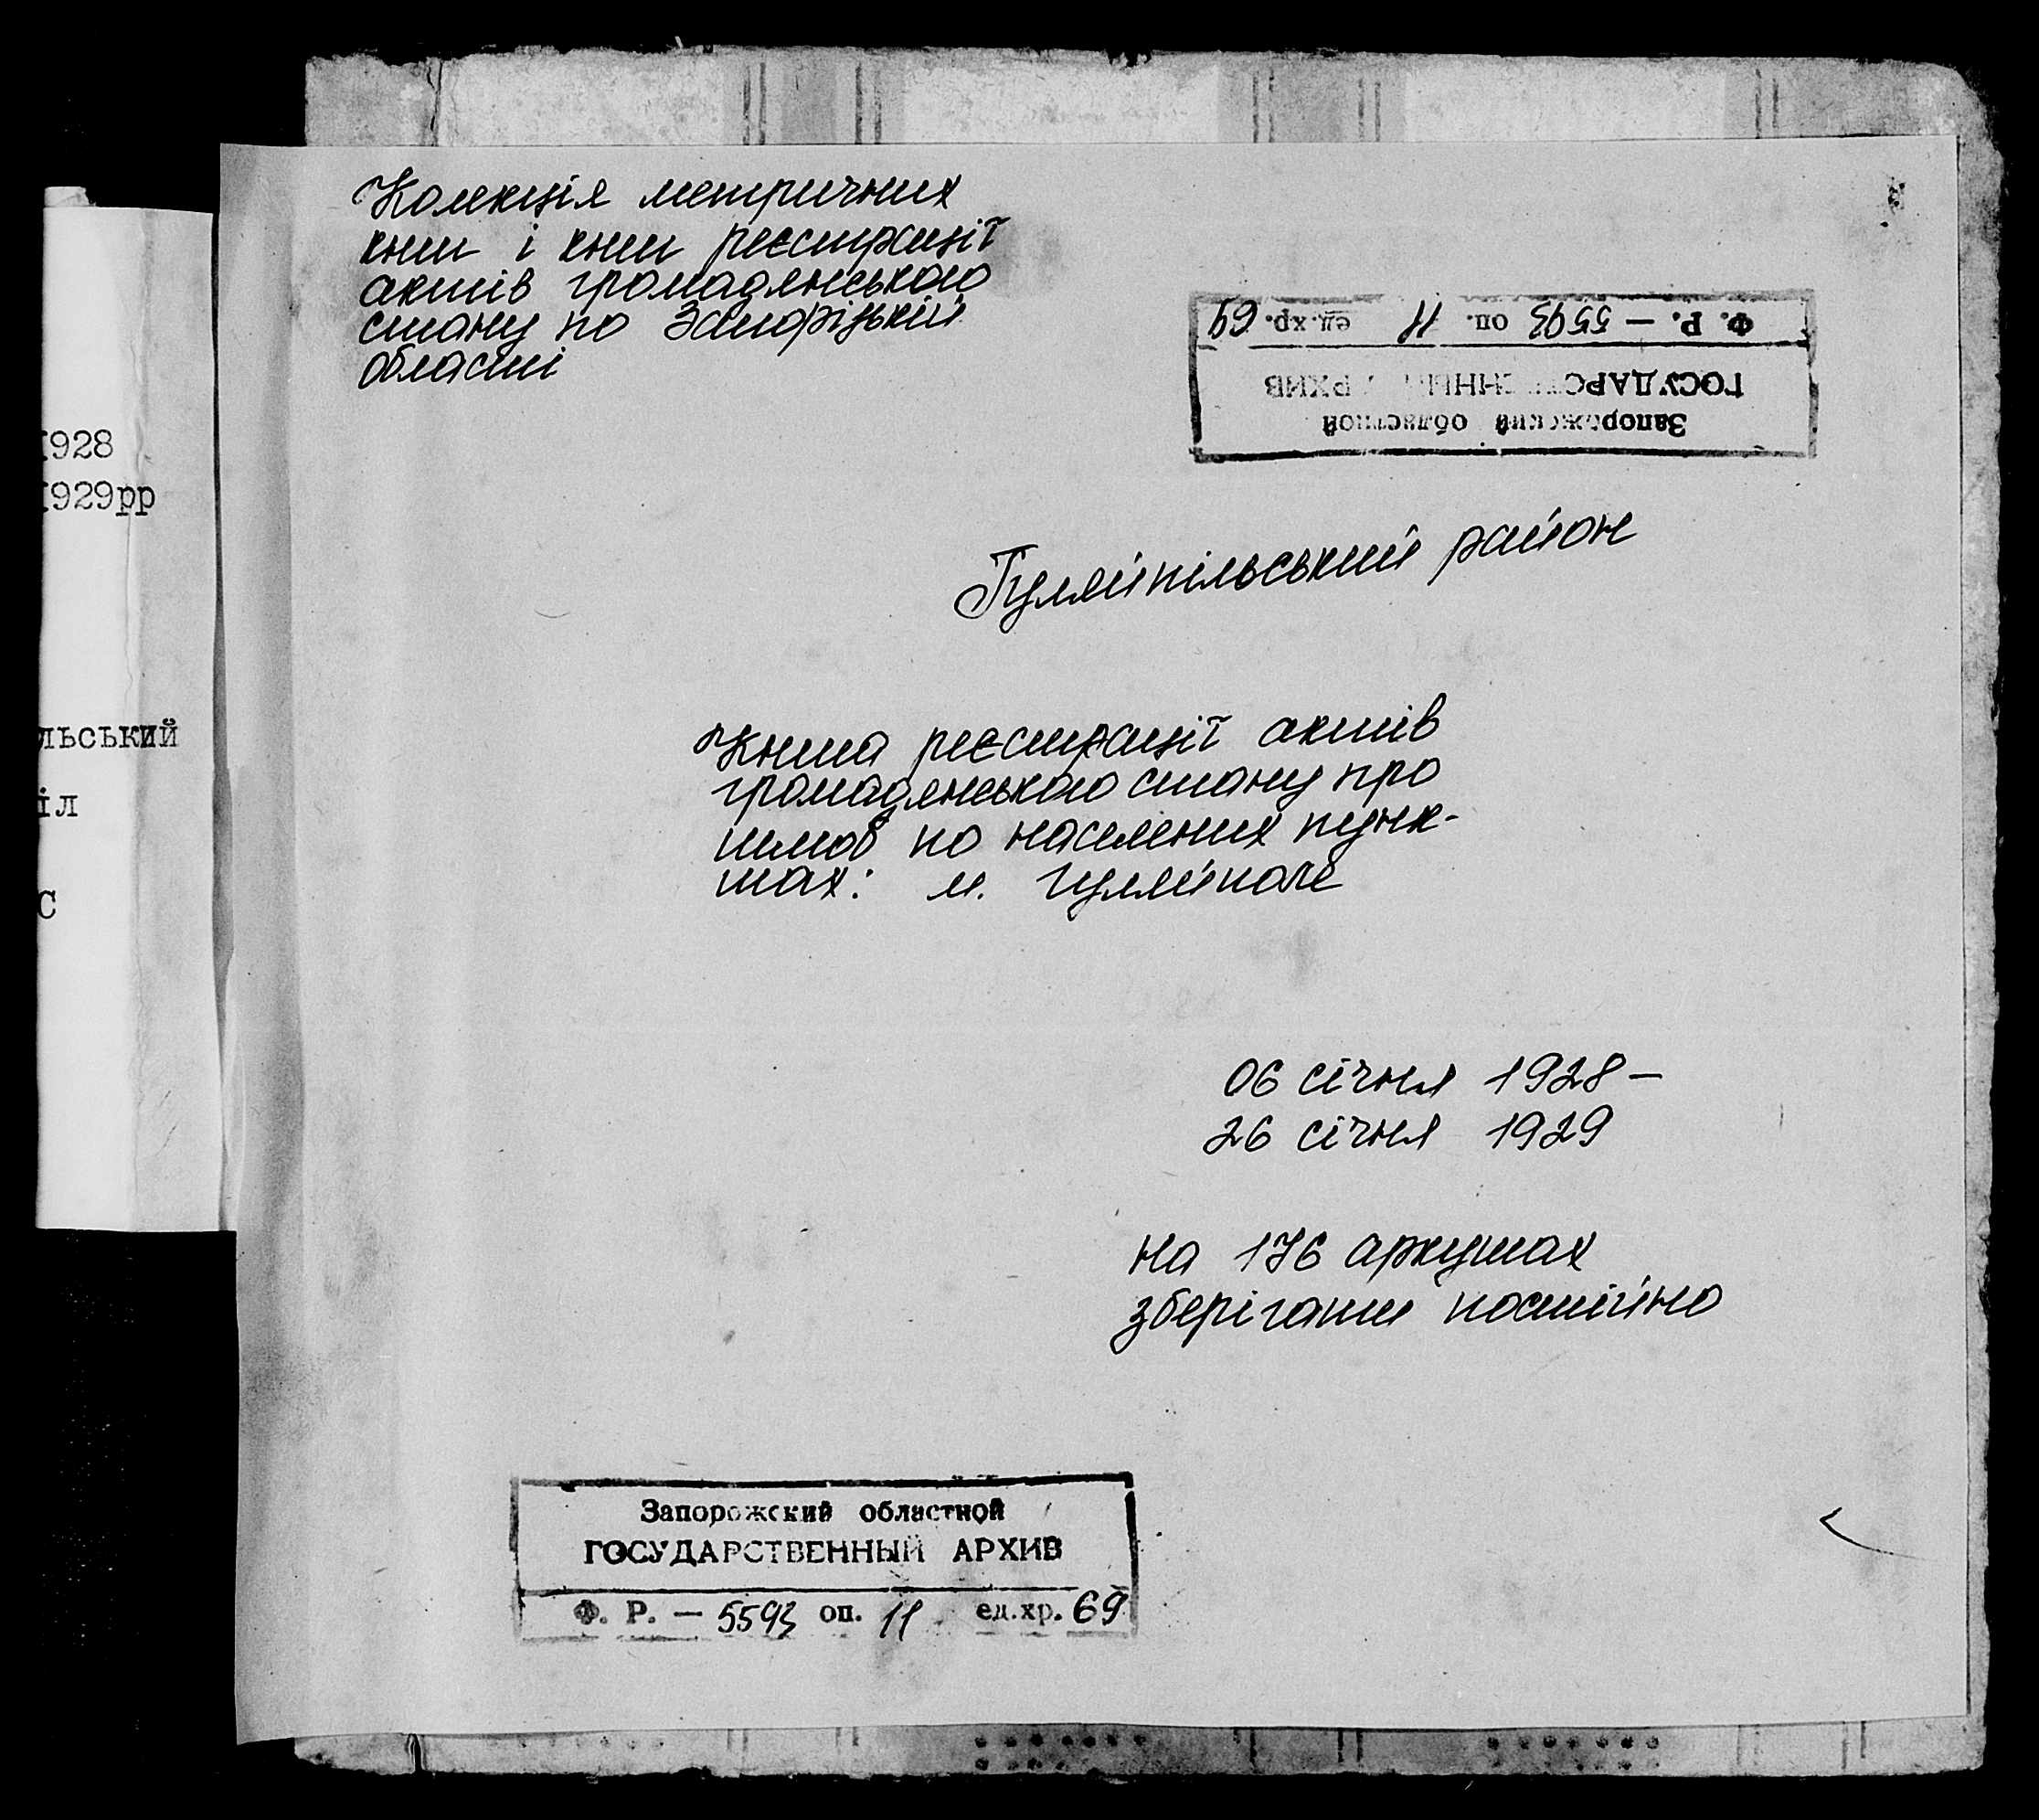 Колекція метричних
книг і книг реєстрації
актів громадянського
стану по Запорізькій
області
Ф. Р. — 5593 оп. 11 ед.хр. 69
ГОСУДАРСТВЕННЫЙ АРХИВ
Запорожский областной
Гуляйпільський район
Книга реєстрації актів
громадянського стану про
шлюб по населених пунк-
тах: м. Гуляйполе
06 січня 1928 —
26 січня 1929
на 176 аркушах
зберігати постійно
Запорожский областной
ГОСУДАРСТВЕННЫЙ АРХИВ
Ф. Р. — 5593 оп. 11 ед.хр. 69
I928
I929рр
льський
іл
С